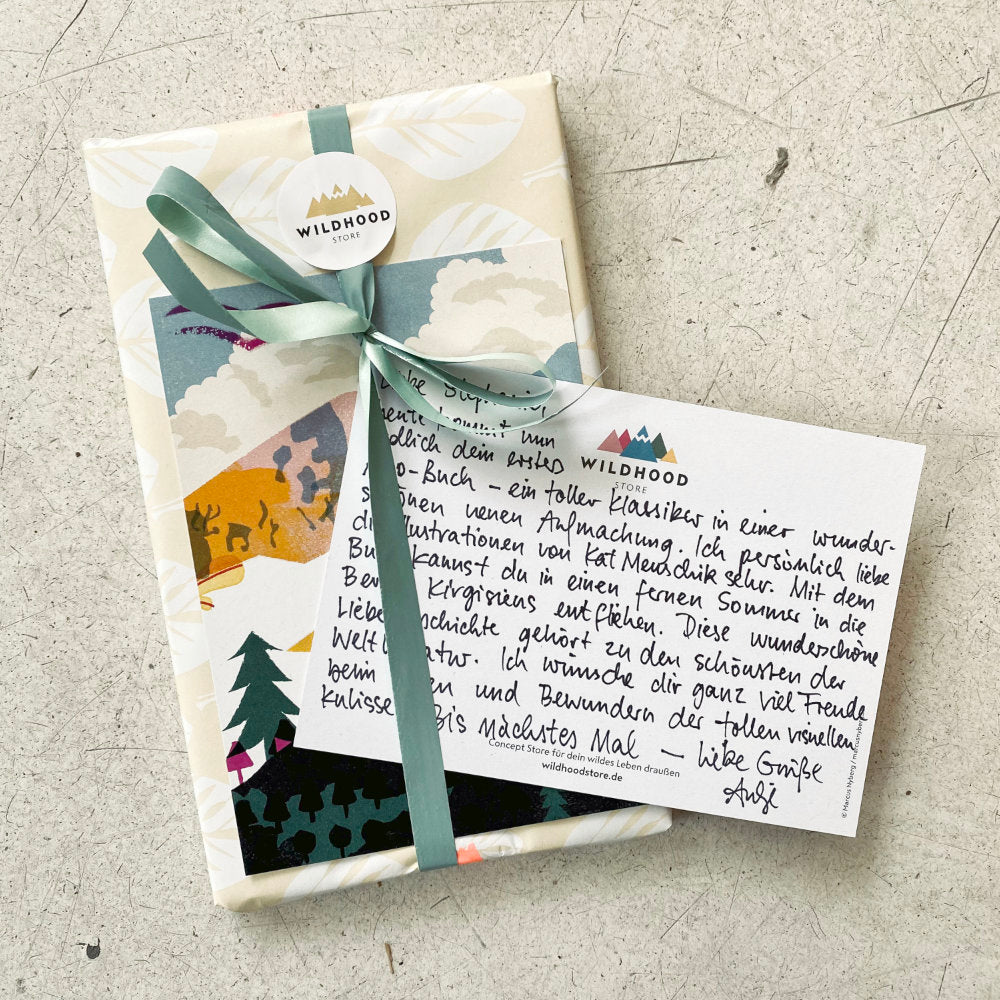 WILDHOOD
STORE
Liebe Stephanie,
heute kommt nun
endlich dein erstes
WILDHOOD
STORE
-Buch – ein toller Klassiker in einer wunder-
schönen neuen Aufmachung. Ich persönlich liebe
die Illustrationen von Kat Menschik sehr. Mit dem
Buch kannst du in einen fernen Sommer in die
Berge Kirgisiens entfliehen. Diese wunderschöne
Liebesgeschichte gehört zu den schönsten der
Weltliteratur. Ich wünsche dir ganz viel Freude
beim und Bewundern der tollen visuellen
Kulisse. Bis nächstes Mal – liebe Grüße
Antje
Concept Store für dein wildes Leben draußen
wildhoodstore.de
© Marcus Nyberg / marcusnyberg